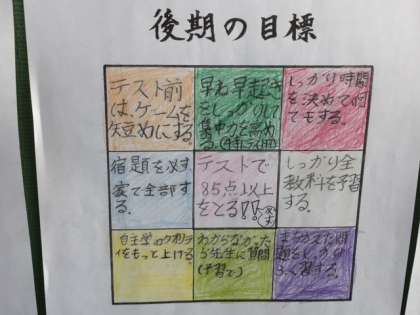 後期の目標
テスト前
は、ゲームを
短めにする。
早ね早起き
をしっかりして
集中力を高め
る。
しっかり時間
を決めて何
でもする。
宿題を必ず
家で全部する
テストで
85点以上
をとる!!
しっかり全
教科を予習
する。
自主学のクオリテ
ィをもって上げる。
わからなかった
ら先生に質問
(予習で)
まちがえた問
題をしっかり
復習する。